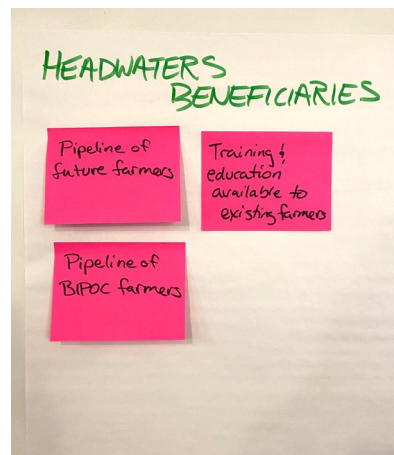 HEADWATERS
BENEFICIARIES
Pipeline of
future farmers
Training &
education
available to
existing farmers
Pipeline of
BIPOC farmers